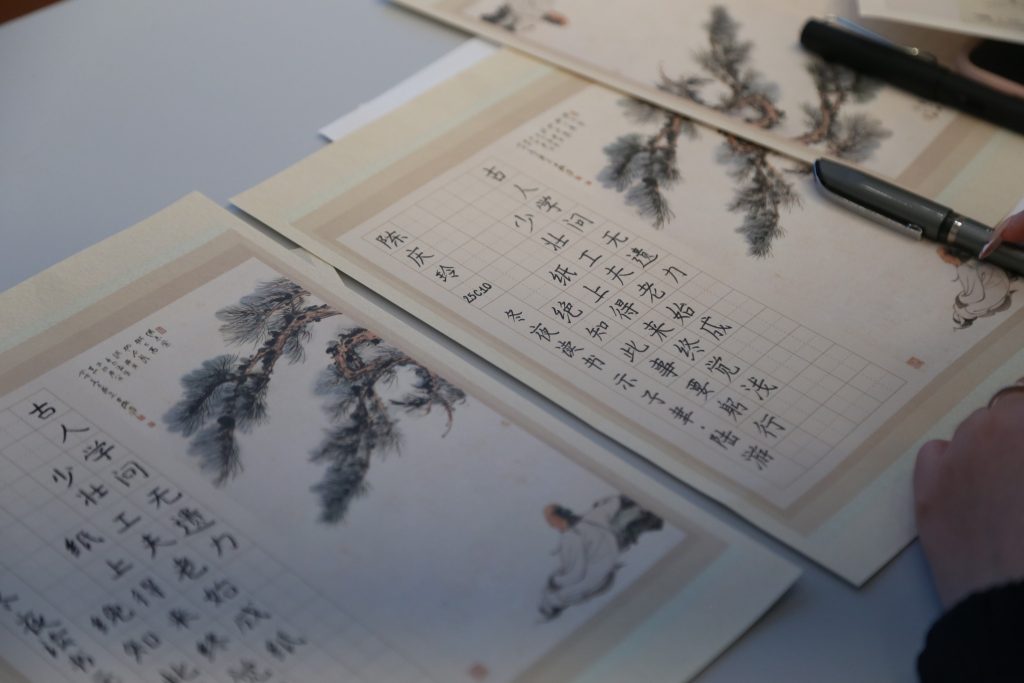 古人学问无遗力
少壮工夫老始成
纸上得来终觉浅
绝知此事要躬行
冬夜读书示子聿·陆游
25C10
陈庆玲
古人学问无遗力
少壮工夫老始成纸
纸上得来终觉
绝知此
夜读书